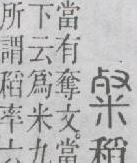 粲稻
當有奪文。當
下云爲米九
所謂稻率六